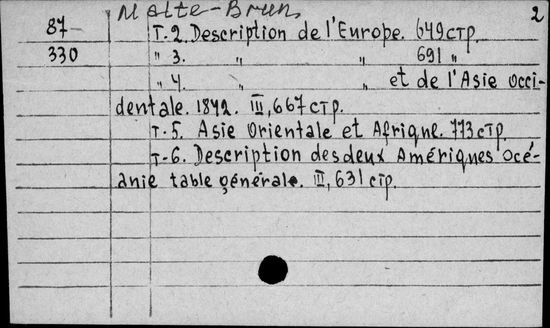 Malte-Brun,
2
87-
330
T. 2. Description de l'Europe. 649 стр.
" 3. " " 691 "
" 4. " " et de l'Asie Occi-
dentale. 1842. III, 667 стр.
T. 5. Asie Orientale et Afrique. 773 стр.
T-6. Description des deux Amériques Océ-
anie table générale. II, 631 стр.